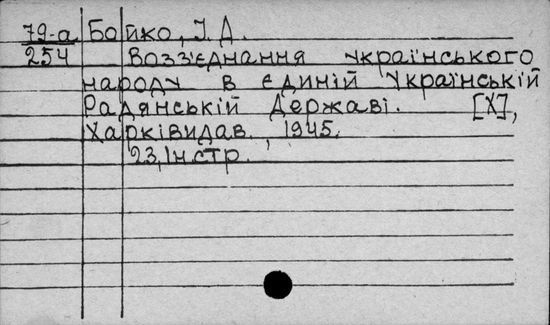 79-а Бойко, І. Д.
254 Возз'єднання українського
народу в єдиній Українській
Радянській Державі. [Х],
Харківидав., 1945.
23, Ін. стр.